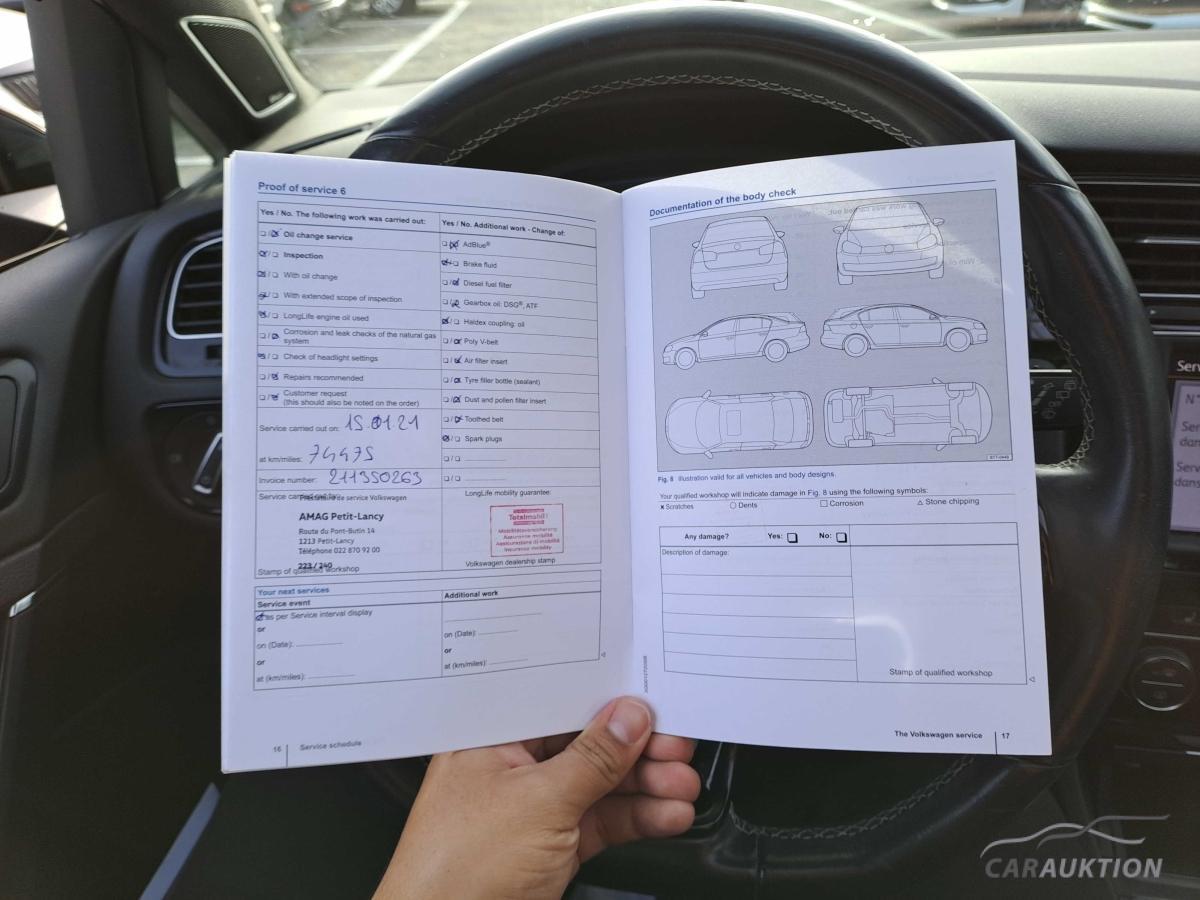 Proof of service 6
Yes / No. The following work was carried out:
Oil change service
Inspection
With oil change
With extended scope of inspection
LongLife engine oil used
Corrosion and leak checks of the natural gas
system
Check of headlight settings
Repairs recommended
Customer request
(this should also be noted on the order)
Service carried out on: 15.01.21
at km/miles: 74475
Invoice number: 211350263
Service
de service Volkswagen
AMAG Petit-Lancy
Route du Pont-Butin 14
1213 Petit-Lancy
Téléphone 022 870 92 00
223 / 240
Stamp of qualified workshop
Yes / No. Additional work - Change of:
AdBlue®
Brake fluid
Diesel fuel filter
Gearbox oil: DSG®, ATF
Haldex coupling: oil
Poly V-belt
Air filter insert
Tyre filler bottle (sealant)
Dust and pollen filter insert
Toothed belt
Spark plugs
LongLife mobility guarantee:
Totalmobil!
Mobilitätsversicherung
Assurance mobilité
Assicurazione di mobilità
Insurance mobility
Volkswagen dealership stamp
Your next services
Service event
as per Service interval display
or
on (Date):
or
at (km/miles):
Additional work
on (Date):
or
at (km/miles):
16 Service schedule
Documentation of the body check
Fig. 8 Illustration valid for all vehicles and body designs.
Your qualified workshop will indicate damage in Fig. 8 using the following symbols:
x Scratches ○ Dents □ Corrosion △ Stone chipping
Any damage? Yes: No:
Description of damage:
Stamp of qualified workshop
The Volkswagen service 17
CARAUKTION